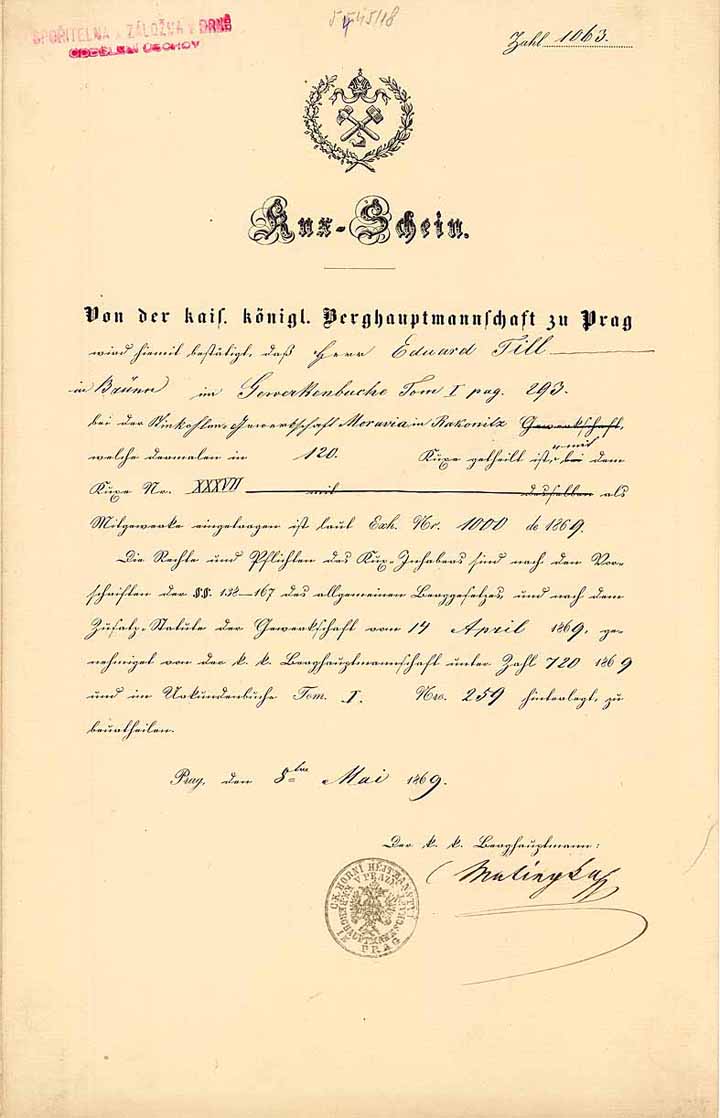 SPOŘITELNA A ZÁLOŽNA V BRNĚ
ODDĚLENÍ ÚSCHOV
Zahl 1063.
Kux-Schein.
Von der kais. königl. Berghauptmannschaft zu Prag
wird hiemit bestätigt, daß Herr Eduard Till
in Brünn im Gewerkenbuche Tom I pag. 293.
bei der Steinkohlen-Gewerkschaft Moravia in Rakonitz Gewerkschaft,
welche dermalen in 120. Kuxe getheilt ist, bei mit dem
Kuxe Nr. XXXVII mit desselben als
Mitgewerke eingetragen ist laut Exh. Nr. 1000 de 1869.
Die Rechte und Pflichten des Kux-Inhabers sind nach den Vor-
schriften der §§. 138–167 des allgemeinen Berggesetzes, und nach dem
Zusatz-Statute der Gewerkschaft vom 14 April 1869, ge-
nehmiget von der k. k. Berghauptmannschaft unter Zahl 720 1869
und im Urkundenbuche Tom. I. Nro. 259 hinterlegt, zu
beurtheilen.
Prag, den 8ten Mai 1869.
Der k. k. Berghauptmann:
C.K. HORNÍ HEJTMANSTVÍ V PRAZE
K.K. BERGHAUPTMANNSCHAFT IN PRAG